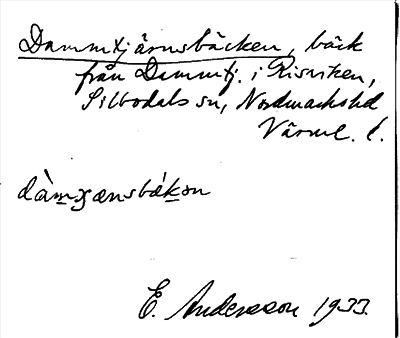 Dammtjärnsbäcken, bäck
från Dammtj. i Risviken,
Silbodals sn, Nordmarks hd
Värml. l.
dàmχænsbǽkən
E. Andersson 1933.